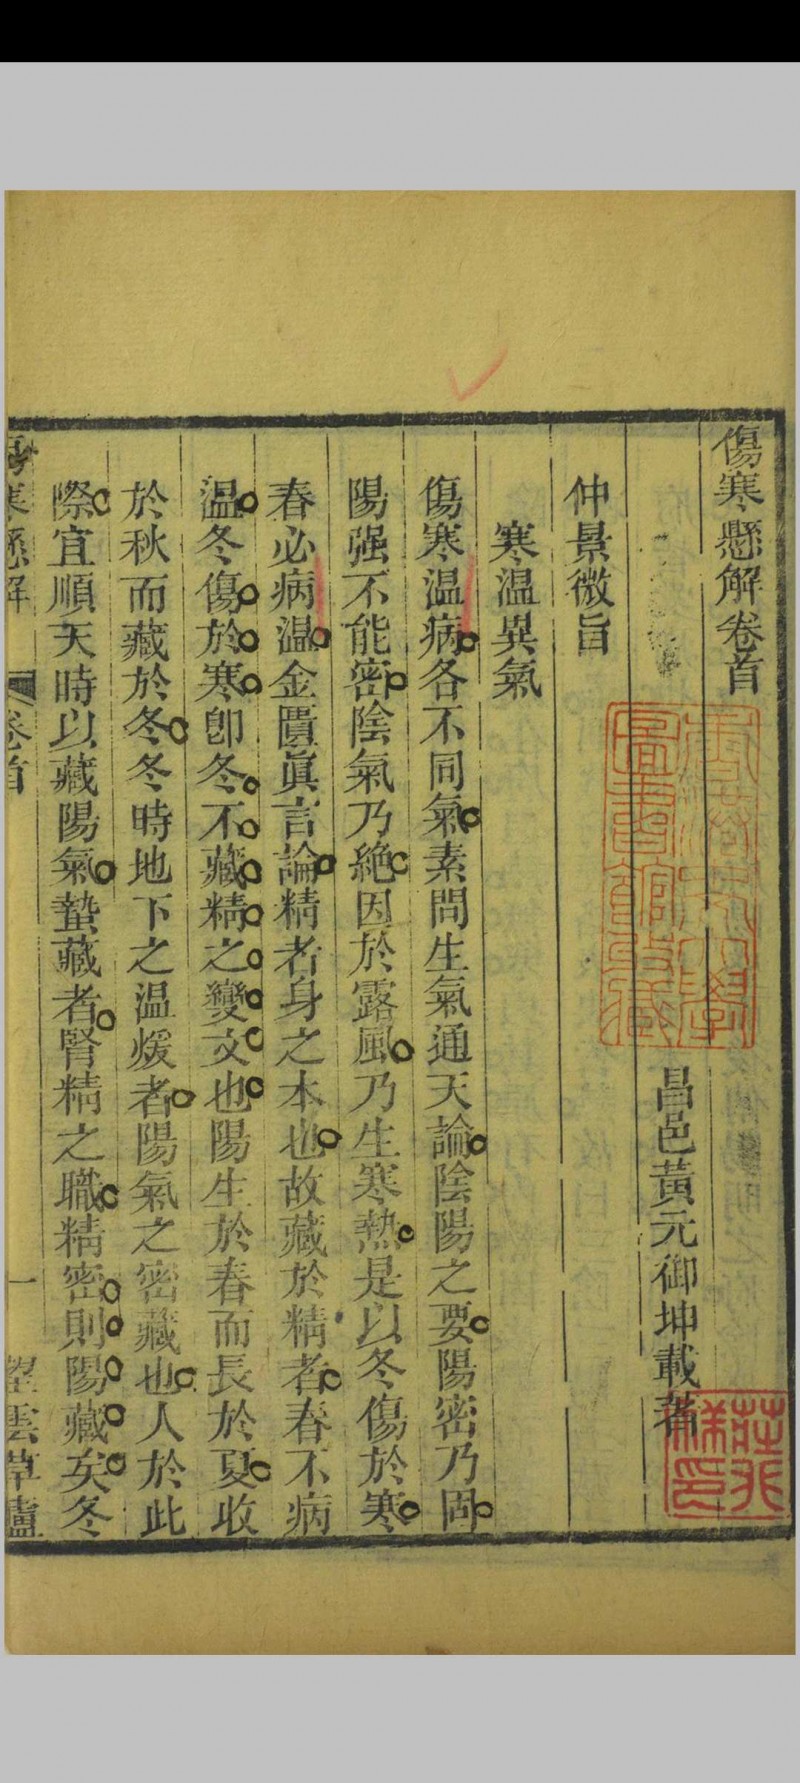 傷寒懸解卷首
昌邑黃元御坤載著
仲景微旨
寒溫異氣
傷寒溫病各不同氣素問生氣通天論陰陽之要陽密乃固
陽强不能密陰氣乃絶因於露風乃生寒熱是以冬傷於寒
春必病溫金匱眞言論精者身之本也故藏於精者春不病
溫冬傷於寒卽冬不藏精之變文也陽生於春而長於夏收
於秋而藏於冬冬時地下之溫煖者陽氣之密藏也人於此
際宜順天時以藏陽氣蟄藏者腎精之職精密則陽藏矣冬
傷寒懸解 卷首 一